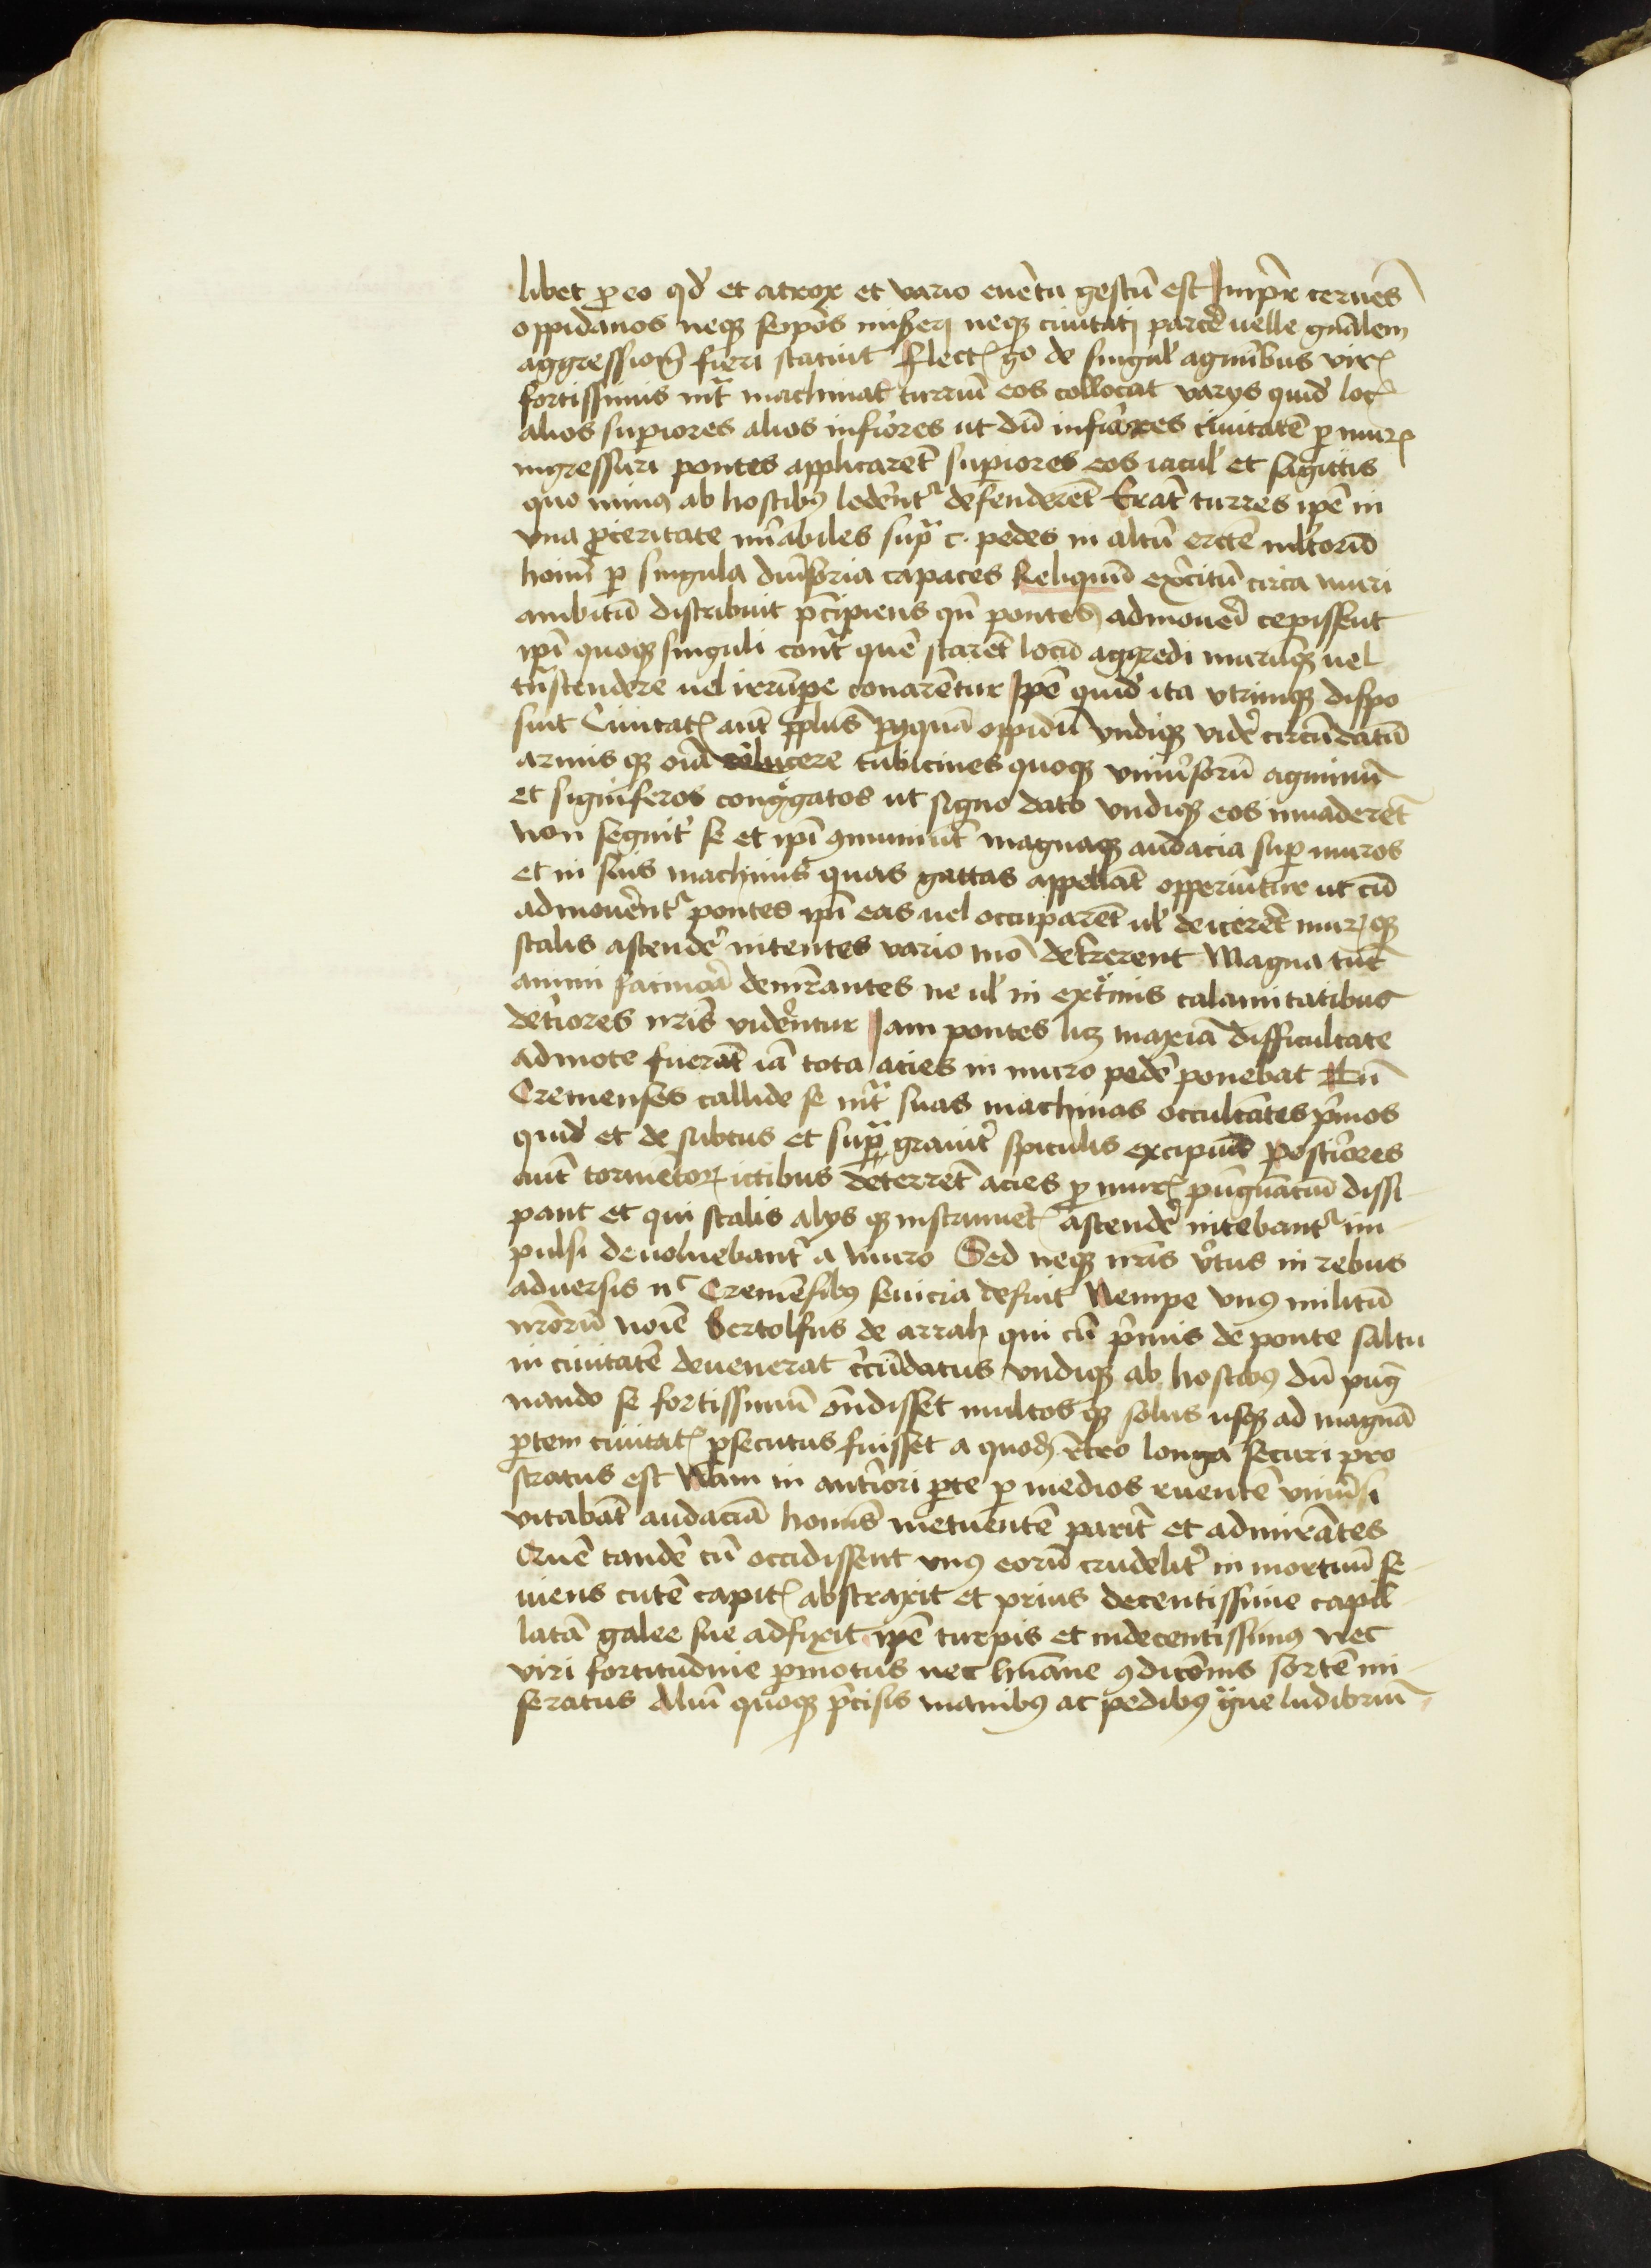 libet ꝑ eo qd̓ et atrox et vario euētu gestū est Imꝑ̄r cernēs
oppidanos neqꝫ seipōs miserj neqꝫ ciuitatj parcē uelle gn̄alem
aggressioem̄ fieri statuit Elect̄ g̊o de singul̓ agminibus vir̄
fortissimis int̄ machinat̄ turrium eos collocat varys quid̄ loc̄
alios suꝑiores alios inferiores ut dū inferiores ciuitatē ꝑ mur̄
ingressuri pontes applicarēt suꝑiores eos iacul̓ et sagittis
quo minꝰ ab hostibꝰ ledēnt̄ defenderēt Erāt turres ipē in
vna ꝓceritate mirabiles supᷓ c. pedes in altū erctē mltorū
homī ꝑ singula diuisoria capaces Reliquū exērcitū circa muri
ambitū distribuit p̄cipiens qn̄ pontes admouerī cepissent
ipī quoqꝫ singuli cont̄ quē starēt locū aggredi murūqꝫ uel
trᷓscendere uel irrūpe conarentur Ipē quid̄ ita vtrimqꝫ dispo
suit Ciuitat̄ aūt ꝓplus ꝓquā oppidū vndiqꝫ vidēt circūdatū
armis qꝫ om̄ia relucere tubicines quoqꝫ vniūsorū agminū
et signiferos congͤgatos ut signo dato vndiqꝫ eos inuaderēt
non segnit̓ se et ipī 9muniūt magnaqꝫ audacia suꝑ muros
et in suis machinis quas gattas appellāt opperiūtur ut cū
admouēnt̄ pontes ipī eas uel occuparēt ul̓ deicerēt murꝫ qꝫ
scalis ascendē nitentes vario mō det̓rerent Magna tūc
animi facinora demrāntes ne ul̓ in extͤmis calamitatibus
det̓iores nr̄is viderentur Iam pontes licꝫ maxīa difficultate
admote fuerāt iā tota acies in muro pedē ponebat Tū
Cremenses callide se int̄ᷓ suas machinas occultātes p̄mos
quid̄ et de subtus et supᷓ grauit̓ spiculis excipiūt Post̓iores
aūt tormētoꝝ ictibus deterrēt acies ꝑ mur̄ pūgnātiū dissi
pant et qui scalis alys qꝫ instrumēt̄ ascendē nitebant̄ im
pulsi deuoluebant̄ a muro Sed neqꝫ nr̄is v̓tus in rebus
aduersis nͨ Cremēsibꝰ seuicia defuit Nempe vnꝰ militū
nr̄orū noīe Bertolfus de arrah qui cū p̄mis de ponte saltu
in ciuitatē deuenerat c̓cūdatus vndiqꝫ ab hostibꝰ dū pug̅
nando se fortissimū on̄disset multos qꝫ solus usqꝫ ad magnā
ꝑtem ciuitat̄ ꝑsecutus fuisset a quod̄ ret̓o longa securi pro
stratus est Nam in ant̓iori ꝑte ꝑ medios ruentē vniūsi
vitabāt audaciā homīs metuentē parit̓ et admirātes
Quē tandē cū occidissent vnꝰ eorū crudelit̓ in mortuū se
uiens cutē capit̄ abstraxit et prius decentissime capil
latā galee sue adfixit ipē turpis et indecentissimꝰ nec
viri fortitudine ꝑmotus nec hūane 9ditōnis sortē mi
seratus Aliū quoqꝫ p̄cisis manibꝰ ac pedibꝰ g̊ue ludibriū